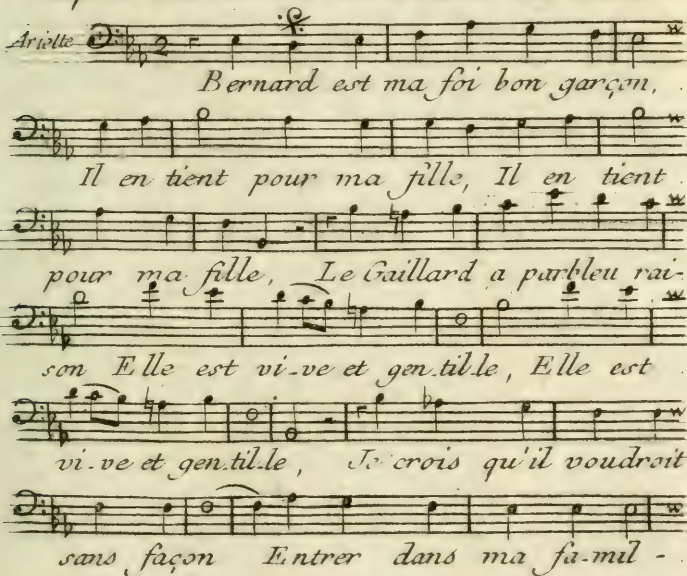 Ariette 2
Bernard est ma foi bon garçon,
Il en tient pour ma fille, Il en tient
pour ma fille, Le Gaillard a parbleu rai-
son Elle est vi-ve et gen-til-le, Elle est
vi-ve et gen-til-le, Je crois qu'il voudroit
sans façon Entrer dans ma fa-mil-